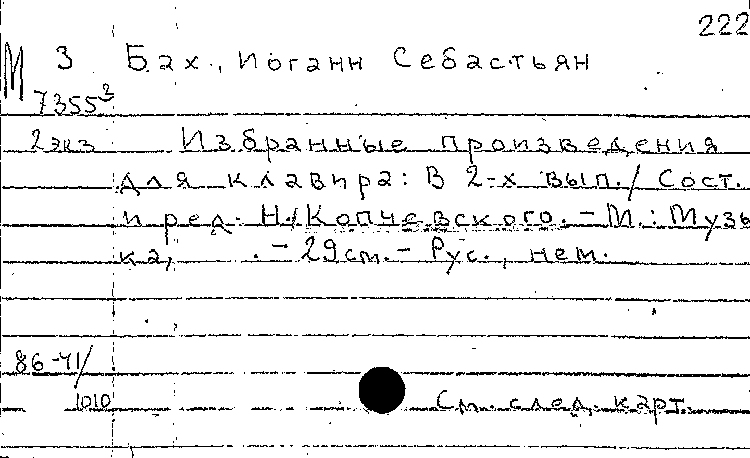 222
М З Бах, Иоганн Себастьян
7355²
2экз Избранные произведения
для клавира: В 2-х вып./ Сост.
и ред. Н. Копчевского. - М.: Музы
ка, . - 29см. - Рус., нем.
86-41/
1010 См. след. карт.